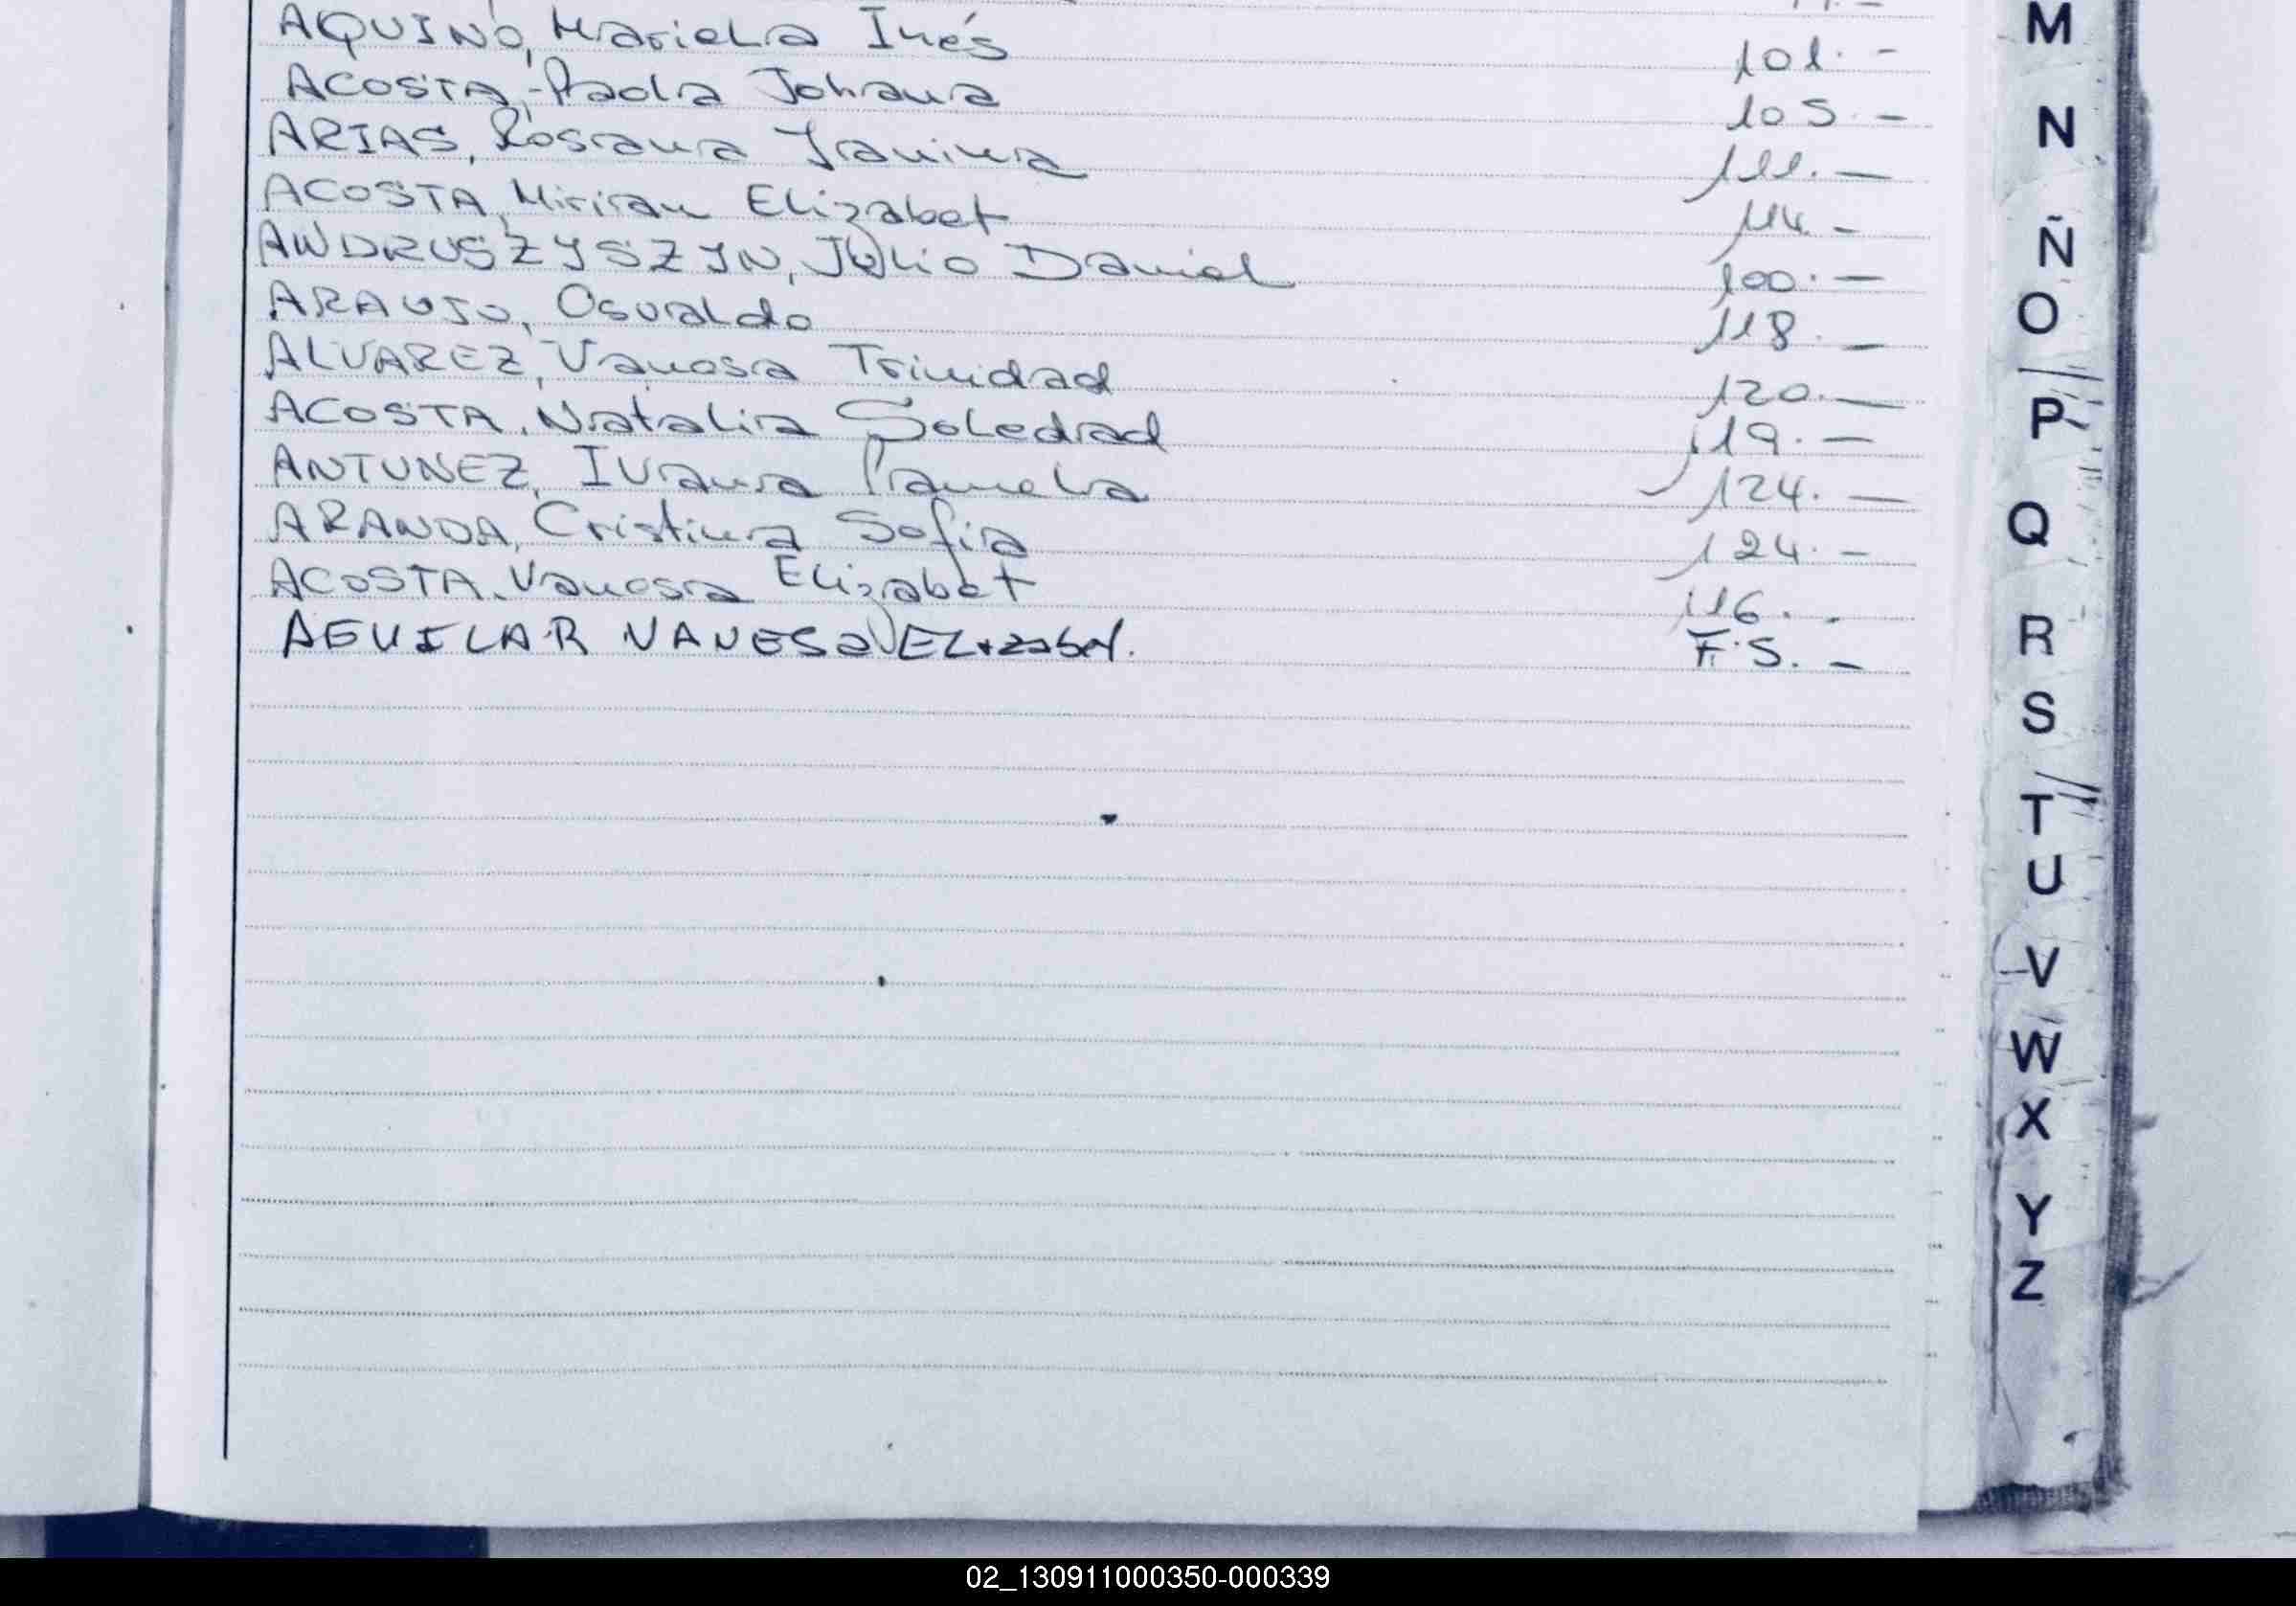 AQUINO, Mariela Inés 101.-
ACOSTA, Paola Johana 105.-
ARIAS, Rosana Yanina 111.-
ACOSTA, Miriam Elizabet 114.-
ANDRUSZYSZYN, Julio Daniel 100.-
ARAUJO, Osvaldo 118.-
ALVAREZ, Vanesa Trinidad 120.-
ACOSTA, Natalia Soledad 119.-
ANTUNEZ, Ivana Pamela 124.-
ARANDA, Cristina Sofia 124.-
ACOSTA, Vanesa Elizabet 116.-
AGUILAR VANESa ELizabet. F.S.-
M
N
Ñ
O
P
Q
R
S
T
U
V
W
X
Y
Z
02_130911000350-000339